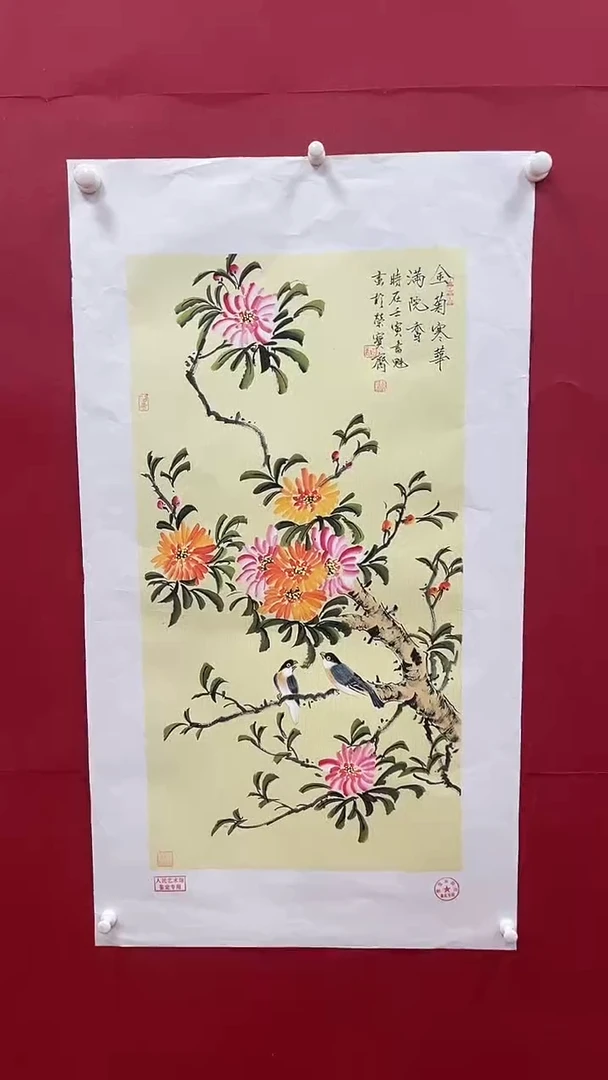 金菊寒華
满院香
時在壬寅書魁
書於榮寶齋
人民艺术馆
鉴定专用